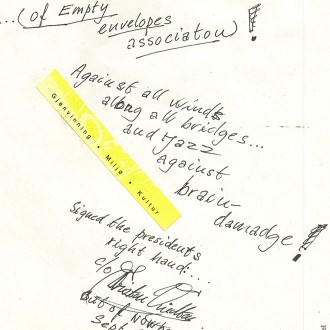 ...(of Empty
envelopes
associaton)!
Against all winds
along all bridges...
and Jazz
against
brain-
damadge!
Glenvinning • Miljø • Kultur
Signed the presidents
right hand:...
c/o
out of Nowh
Sept